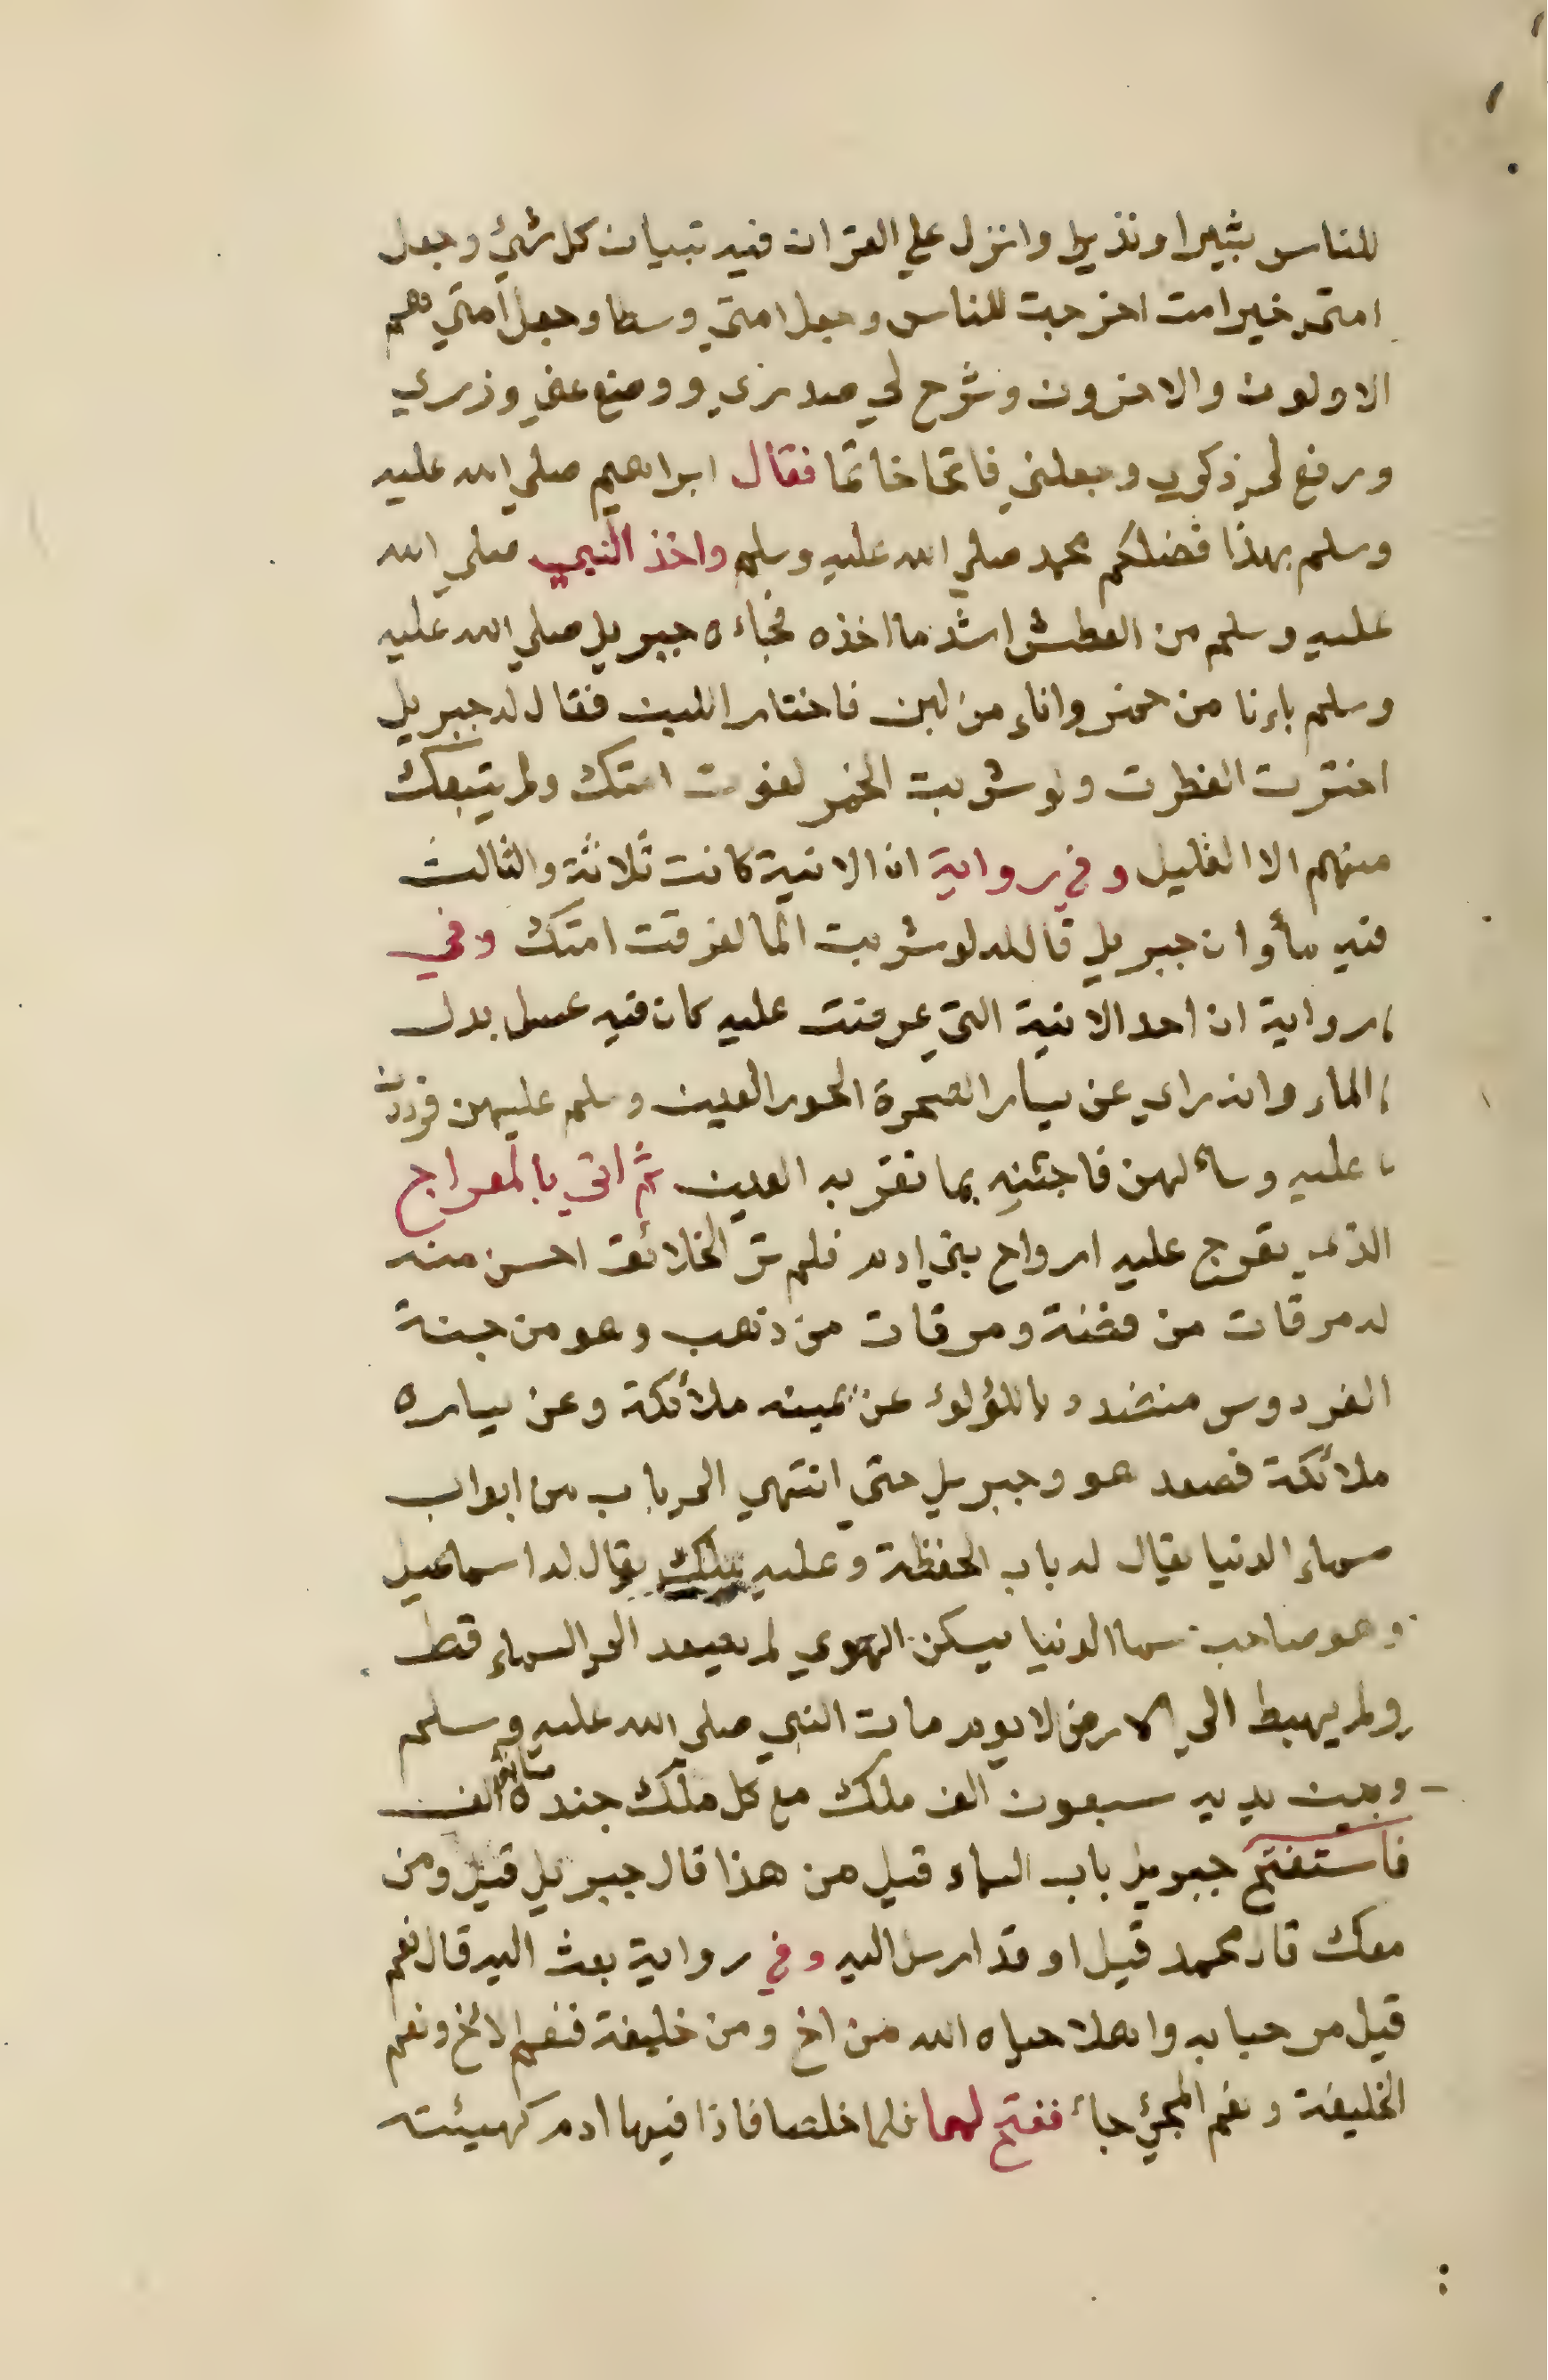 للناس بشيرا ونذيرا وانزل علي القران فيه تبيان كل شيئ وجعل
امتي خير امت اخرجت للناس وجعل امتي وسطا وجعل امتي هم
الاولون والاخرون وشرح لي صدري ووضع عني وزري
ورفع لي ذكري وجعلني فاتحا خاتما فقال ابراهيم صلي الله عليه
وسلم بهذا فضلكم محمد صلي الله عليه وسلم واخذ النبي صلي الله
عليه وسلم من العطش اشد ما اخذه فجاءه جبريل صلي الله عليه
وسلم باءنا من خمر واناء من لبن فاختار اللبن فقال له جبريل
اخترت الفطرت ولو شربت الخمر لغوت امتك ولم يتبعك
منهم الا القليل وفي رواية ان الانية كانت ثلاثة والثالث
فيه مأ وان جبريل قال له لو شربت الما لغرقت امتك وفي
رواية ان احد الانية التي عرضت عليه كان فيه عسل بدل
الماء وانه راي عن يسار الصخرة الحور العين وسلم عليهن فرددن
عليه وسألهن فاجبنه بما تقر به العين ثم اتي بالمعراج
الذي تعرج عليه ارواح بني ادم فلم تر الخلائق احسن منه
له مرقات من فضة ومرقات من ذهب وهو من جنة
الفردوس منضدد باللؤلؤ عن يمينه ملائكة وعن يساره
ملائكة فصعد هو وجبريل حتي انتهي الي باب من ابواب
سماء الدنيا يقال له باب الحفظة وعليه ملك يقال له اسماعيل
وهو صاحب سما الدنيا يسكن الهوي لم يصعد الي السماء قط
ولم يهبط الي الارض الا يوم مات النبي صلي الله عليه وسلم
وبين يديه سبعون الف ملك مع كل ملك جنده مائة الف
فاستفتح جبريل باب السماء قيل من هذا قال جبريل قيل ومن
معك قال محمد قيل او قد ارسل اليه وفي رواية بعث اليه قال نعم
قيل مرحبا به واهلا حياه الله من اخ ومن خليفة فنعم الاخ ونعم
الخليفة ونعم المجئ جاء ففتح لهما فلما خلصا فاذا فيها ادم كهيئته